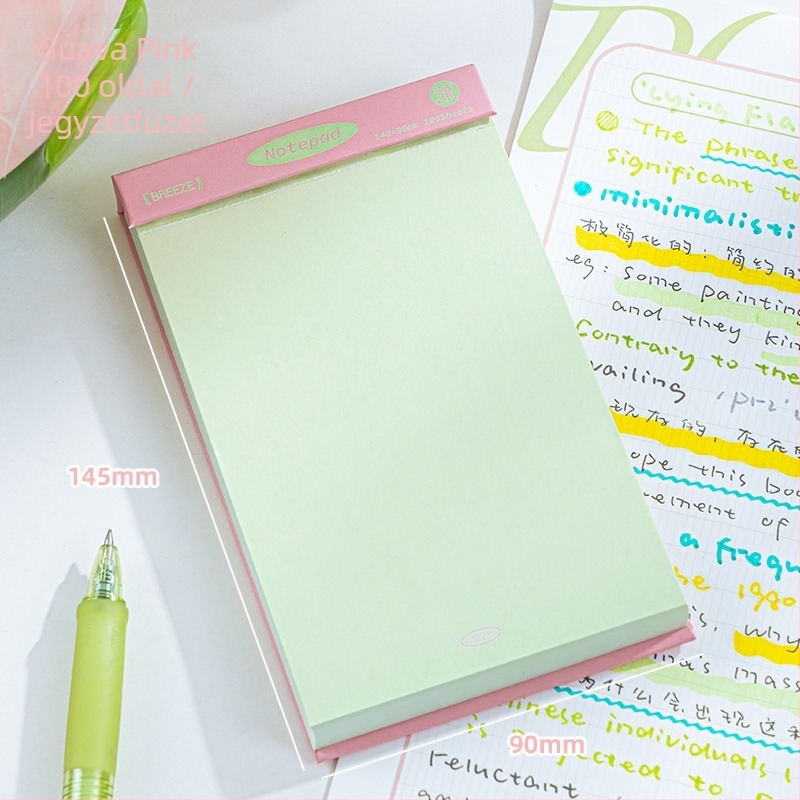 Guava Pink
100 oldal /
Jegyzetfüzet
Notepad
140×90mm 100Sheets
【BREEZE】
145mm
90mm
'Lying Fla
The phrase
significant tr
minimalisti
极简化的；简约的
eg: some painting
and they kin
Contrary to the
vailing
现存的，存在的
ope this boo
ement of
a frequ
he 1980
is, why
na's mass
为什么会出现这种
hinese individuals
is Dejected to
reluctant